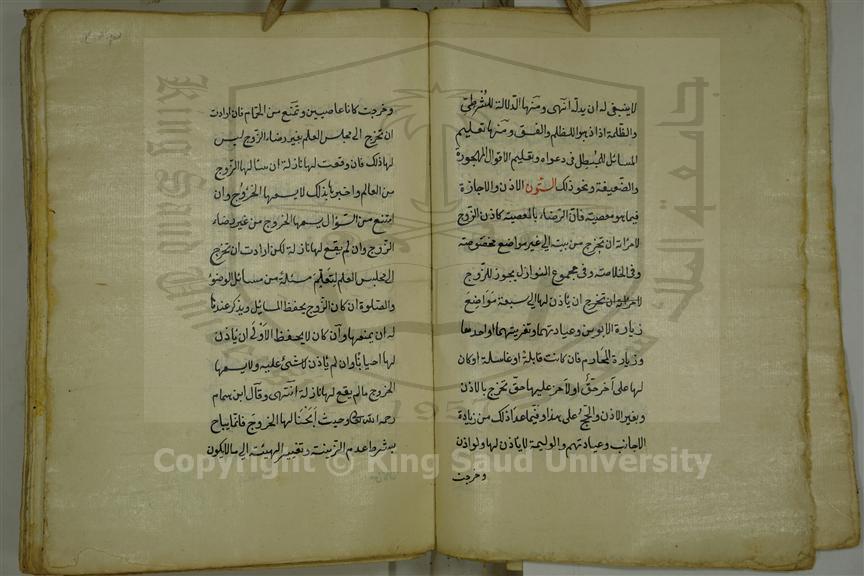 لا ينبغى له ان يدله انتهى ومنها الدلالة للشرطىّ
والظلمة اذا ذهبوا للظلم والفسق ومنها تعليم
المسائل للمبطل فى دعواه وتعليم الاقوال المهجورة
والضعيفة ونحو ذلك الستون الاذن والاجازة
فيما هو معصية فان الرضاء بالمعصية كاذن الزوج
لامرأته ان تخرج من بيته الى غير مواضع مخصوصة
وفى الخلاصة وفى مجموع النوازل يجوز للزوج
ان تخرج ان ياذن لها الى سبعة مَوَاضِعَ
زيارة الابوين وعيادتهما وتعزيتهما او احدهما
وزيارة المحارم فان كانت قابلة او غاسلة او كان
لها على آخر حقّ او لآخر عليها حق تخرج بالاذن
وبغير الاذن والحجّ على هذا وفيما عدا ذلك من زيادة
الاجانب وعيادتهم والوليمة لا ياذن لها ولو اذن
وخرجت
وخرجت كانا عاصيين وتمنع من الحمام فان ارادت
ان تخرج الى مجلس العلم بغير رضاء الزوج ليس
لها ذلك فان وقعت لها نازلة ان سئالها الزوج
من العالم واخبرها بذلك لا يسعها الخروج وان
امتنع من السؤال يسعها الخروج من غير رضاء
الزوج وان لم يقع لها نازلة لكن ارادت ان تخرج
الى مجلس العلم لتعلّم مسئلة من مسائل الوضوء
والصلوة ان كان الزوج يحفظ المسائل ويذكر عندها
له ان يمنعها وان كان لا يحفظ الاولى ان يأذن
لها احيانا وان لم ياذن لا شئ عليه ولا يسعها
الخروج ما لم يقع لها نازلة انتهى وقال ابن همام
رحمه الله وحيث ابحنا لها الخروج فانما يباح
بشرط عدم الزينة وتغيير الهيئة الى ما لا يكون
Copyright © King Saud University
King Saud University
1957